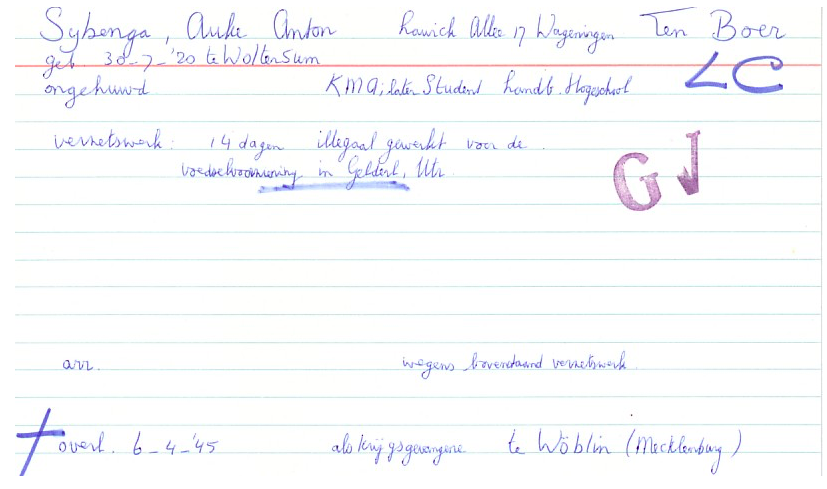 Sybenga, Auke Anton Lawick Allee 17 Wageningen Ten Boer
geb. 30-7-'20 te Woltersum
ongehuwd KMA; later Student Landb. Hogeschool LC
verzetswerk: 14 dagen illegaal gewerkt voor de
voedselvoorziening in Gelderl, Utr.
G
arr. wegens bovenstaand verzetswerk
overl. 6-4-'45 als krijgsgevangene te Wöblin (Mecklenburg)